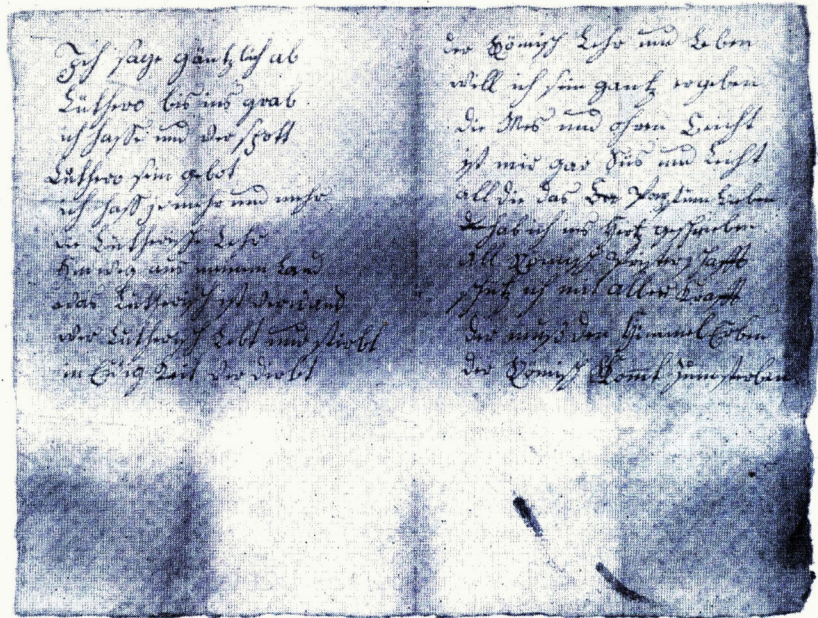 Ich sage gäntzlich ab
Luthero bis ins grab
ich hasse und verspott
Luthero sein gebot
ich hass je mehr und mehr
die Lutherische Lehr
hinweg aus meinem Land
was Lutherisch ist
wer Lutherisch Lebt und stirbt
in Ewig Keit verdirbt
der Römisch Lehr und Leben
will ich sein gantz ergeben
die Mes und ohren Beicht
ist mir gar süs und Leicht
all die das Papstum Lieben
hab ich ins Hertz geschrieben
all Römisch Priesterschafft
schütz ich mit aller Krafft
der muss den Himmel Erben
der Römisch Komt zum sterben